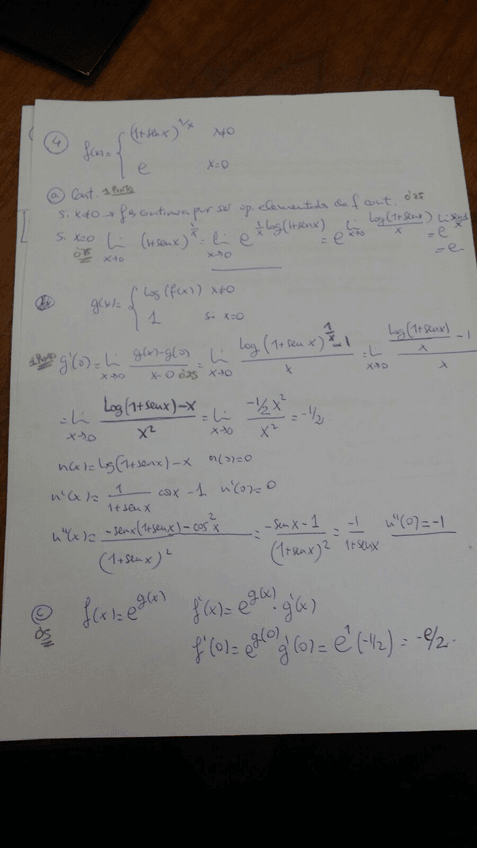 4 f(x)= { (1+senx)^{1/x} x≠0
e x=0
a) Cont. 1 Punto
Si x≠0 → f es continua por ser op. elementales de f cont. 0'25
Si x=0 Lim x→0 (1+senx)^{1/x} = Lim x→0 e^{1/x log(1+senx)} = e^{Lim x→0 log(1+senx)/x} = e^{Lim senx/x} = e
0'75
b) g(x)= { log(f(x)) x≠0
1 si x=0
1 Punto g'(0)= Lim x→0 g(x)-g(0)/x-0 0'25 = Lim x→0 log(1+senx)^{1/x}-1/x = Lim x→0 log(1+senx)/x -1/x
= Lim x→0 Log(1+senx)-x/x² = Lim x→0 -1/2x²/x² = -1/2
n(x)= log(1+senx)-x n(0)=0
n'(x)= 1/1+senx cosx-1 n'(0)=0
n''(x)= -senx(1+senx)-cos²x/(1+senx)² = -senx-1/(1+senx)² = -1/1+senx n''(0)=-1
c) f(x)= e^{g(x)} f'(x)= e^{g(x)}·g'(x)
0'5 f'(0)= e^{g(0)} g'(0)= e^1(-1/2)= -e/2.